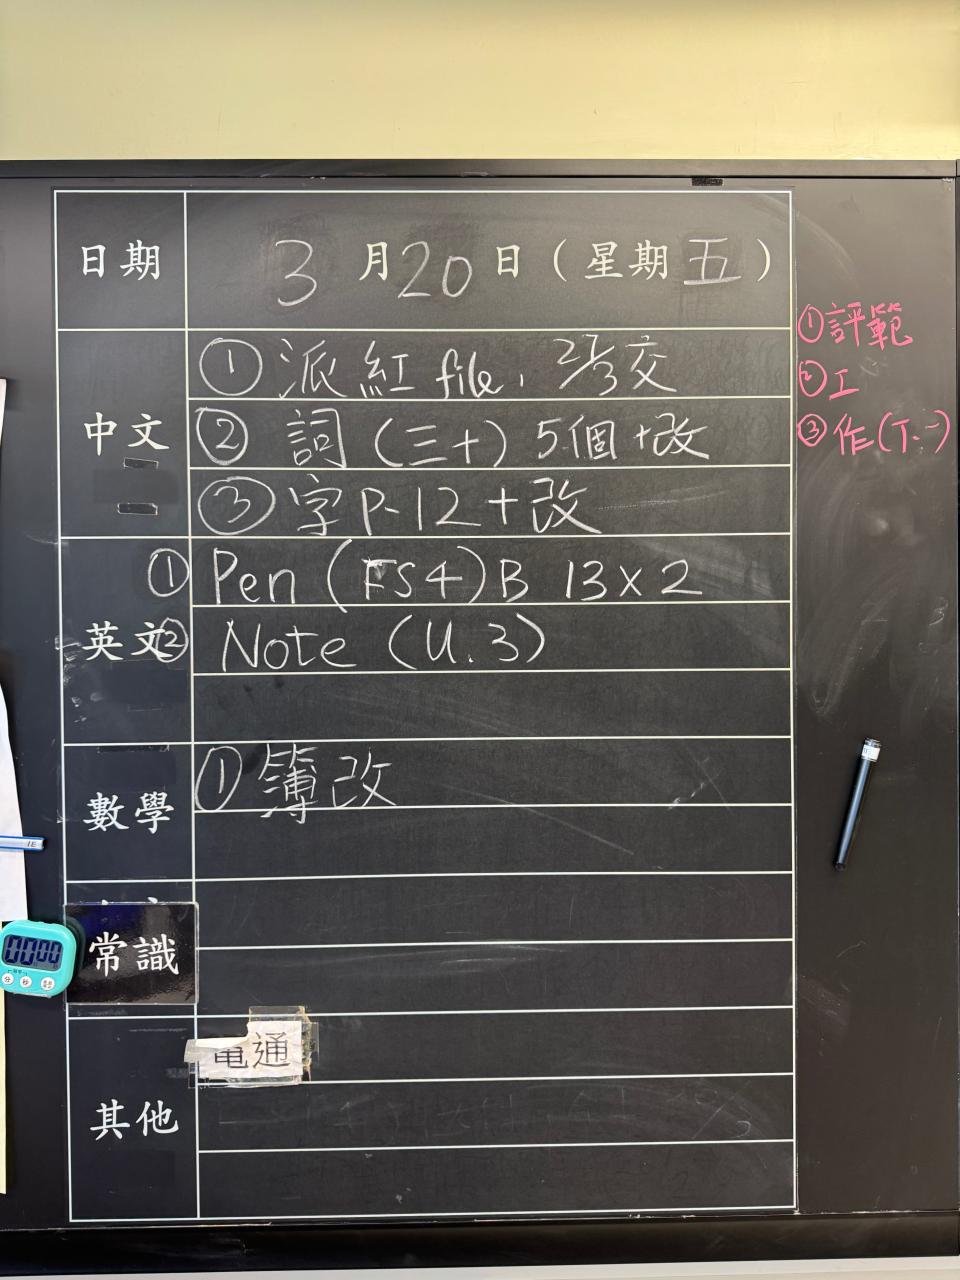 日期 3月20日(星期五)
中文
①派紅file, 23/3交
②詞(三十)5個+改
③字P.12+改
英文
①Pen (FS4)B 13x2
②Note (U.3)
數學
①簿改
常識
其他
電通
①評範
②工
③作(T.一)
00 00
分 秒
1E